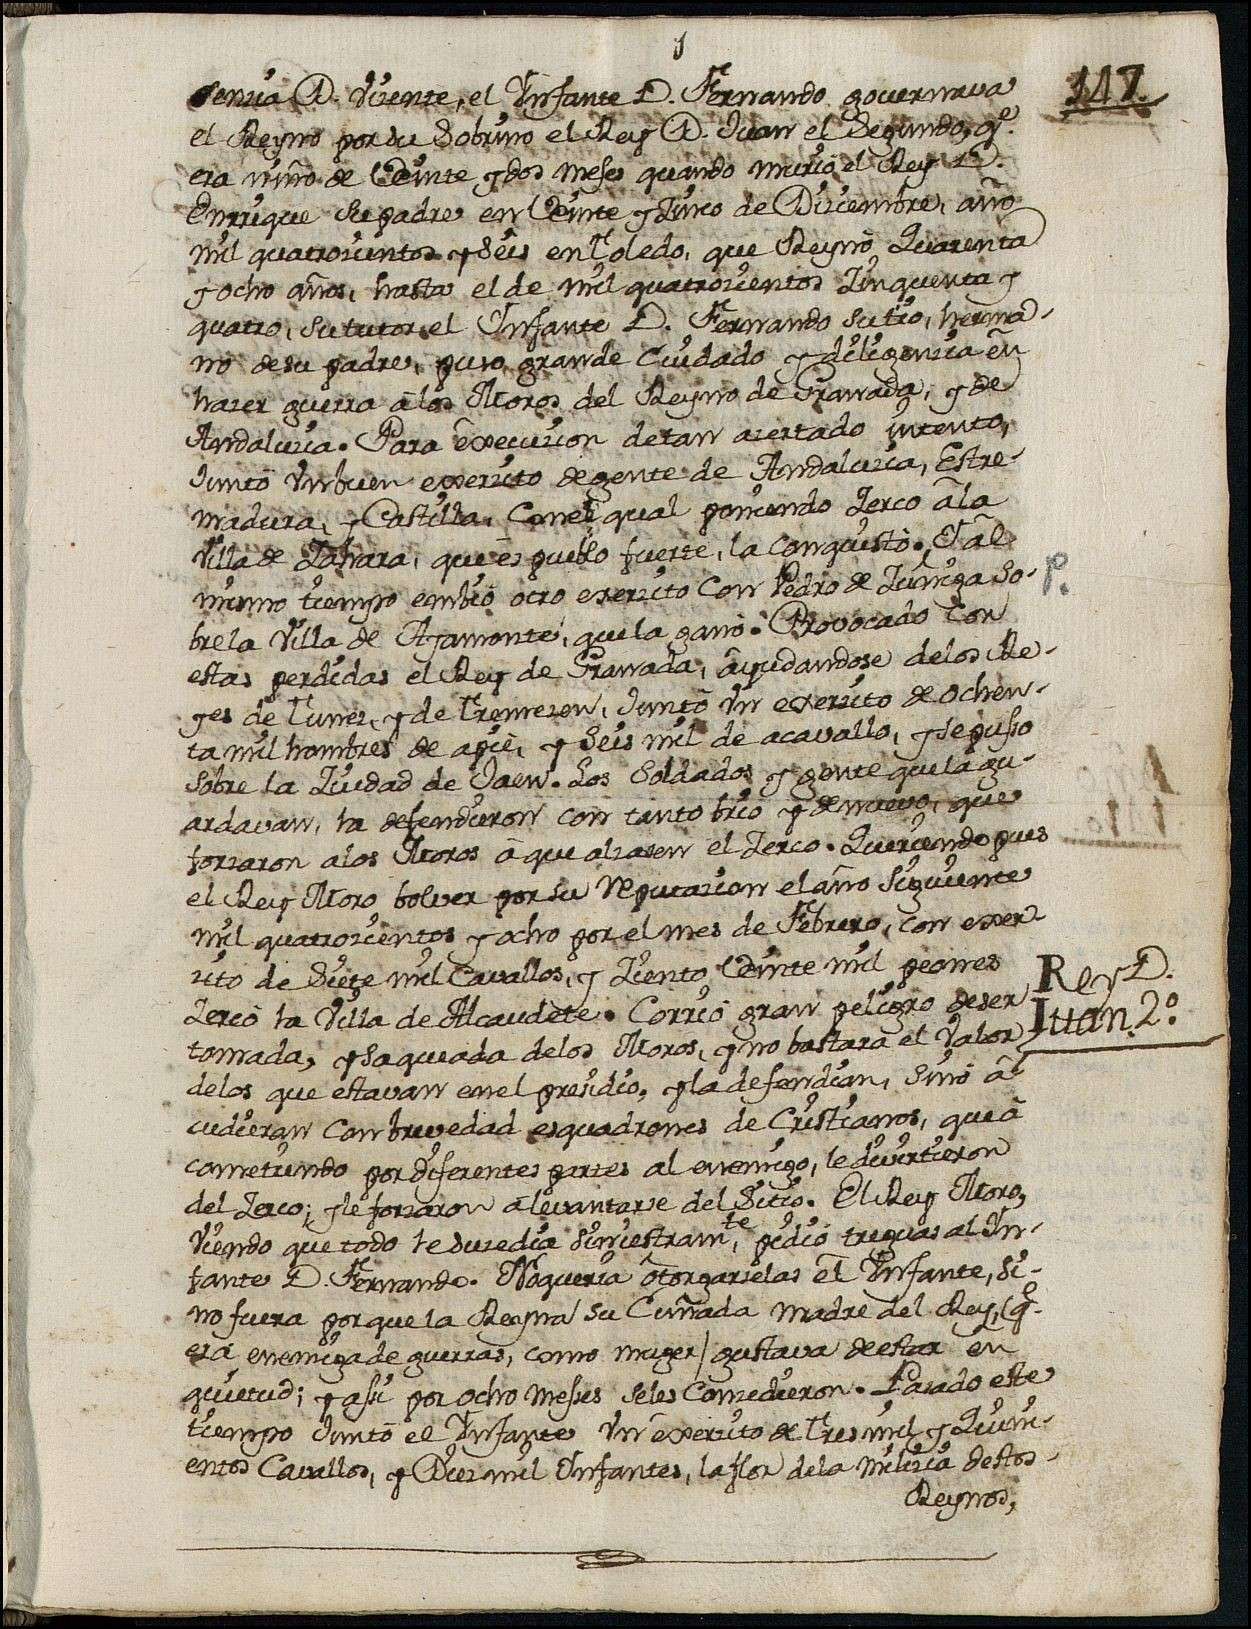 117.
senzia D. Vizente, el Ynfante D. Fernando governava
el Reyno por su Sobrino el Rey D. Juan el Segundo, q.e
era niño de Veinte y dos meses quando murió el Rey D.
Enrrique su padre en Veinte y Zinco de Diziembre, año
mil quatrozientos y Seis en Toledo, que Reynò Quarenta
y ocho años, hasta el de mil quatrozientos Zinquenta y
quatro, su tutor el Ynfante D. Fernando su tio, herma-
no de su padre, puso grande Cuidado y diligenzia en
hazer guerra à los Moros del Reyno de Granada, y de
Andaluzia. Para execuzion de tan azertado intento,
Juntò Vn buen exerzito de gente de Andaluzia, Estre-
madura, y Castilla, Con el qual poniendo Zerco à la
Villa de Zahara, que es pueblo fuerte, la Conquistò. Y al
mismo tiempo embiò otro exerzito Con Pedro de Zuñiga So-
bre la Villa de Ayamonte, que la ganò. Provocado Con
estas perdidas el Rey de Granada, ayudandose de los Re-
yes de Tunez, y de Tremezen, Juntò Vn exerzito de ochen-
ta mil hombres de apie, y Seis mil de acavallo, y se pusso
Sobre la Ziudad de Jaen. Los Soldados y gente que la gu-
ardavan, la defendieron con tanto brio y denuevo, que
forzaron a los Moros à que alzasen el Zerco. Queriendo pues
el Rey Moro bolver por su Reputazion el año Siguiente
mil quatrozientos y ocho por el mes de Febrero, con exer-
zito de Siete mil Cavallos, y Ziento Veinte mil peones
Zercò la Villa de Alcaudete. Corriò gran peligro de ser
tomada, y Saqueada de los Moros, y no bastara el Valor
de los que estavan en el presidio, y la defendian, Sino a-
cudieran Con brevedad esquadrones de Cristianos, que a
cometiendo por diferentes partes al enemigo, le divirtieron
del Zerco; y le forzaron a levantarse del Sitio. El Rey Moro,
Viendo que todo le suzedia Siniestram.te, pidiò treguas al Yn-
fante D. Fernando. No queria otorgarselas el Ynfante, Si-
no fuera por que la Reyna su Cuñada madre del Rey, (q.e
era enemiga de guerras, como muger) gustava de estar en
quietud; y assi por ocho messes se les Conzedieron. Pasado este
tiempo Juntò el Ynfante Vn exerzito de Tres mil y Quini-
entos Cavallos, y Diez mil Ynfantes, la flor de la milizia destos
Reynos,
P.
Rey D.
Juan 2.º